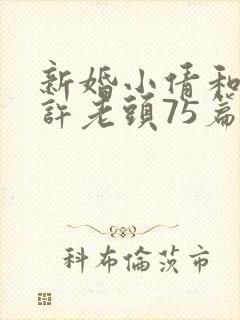 新婚小倩和
許老頭75篇
科布倫茨市